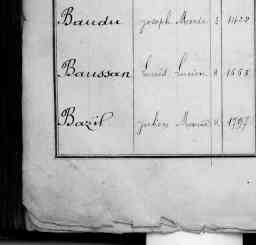 Baudu Joseph Marie
Baussan Louis Lucien
Bazil Julien Marie 1797